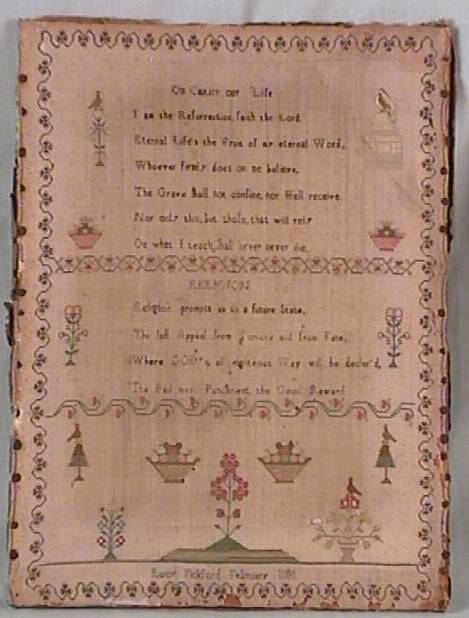 On CHRIST our Life
I am the Resurrection, saith the Lord,
Eternal Life's the Fruit of my eternal Word,
Whoever firmly does on me believe,
The Grave shall not confine, nor Hell receive.
Nor only this, but those, that will rely
On what I teach, shall never never die.
RELIGION
Religion prompts us to a future State,
The last Appeal from Fortune and from Fate,
Where GOD's all righteous Way will be declar'd,
The Bad meet Punishment, the Good Reward
Lucy Pickford February